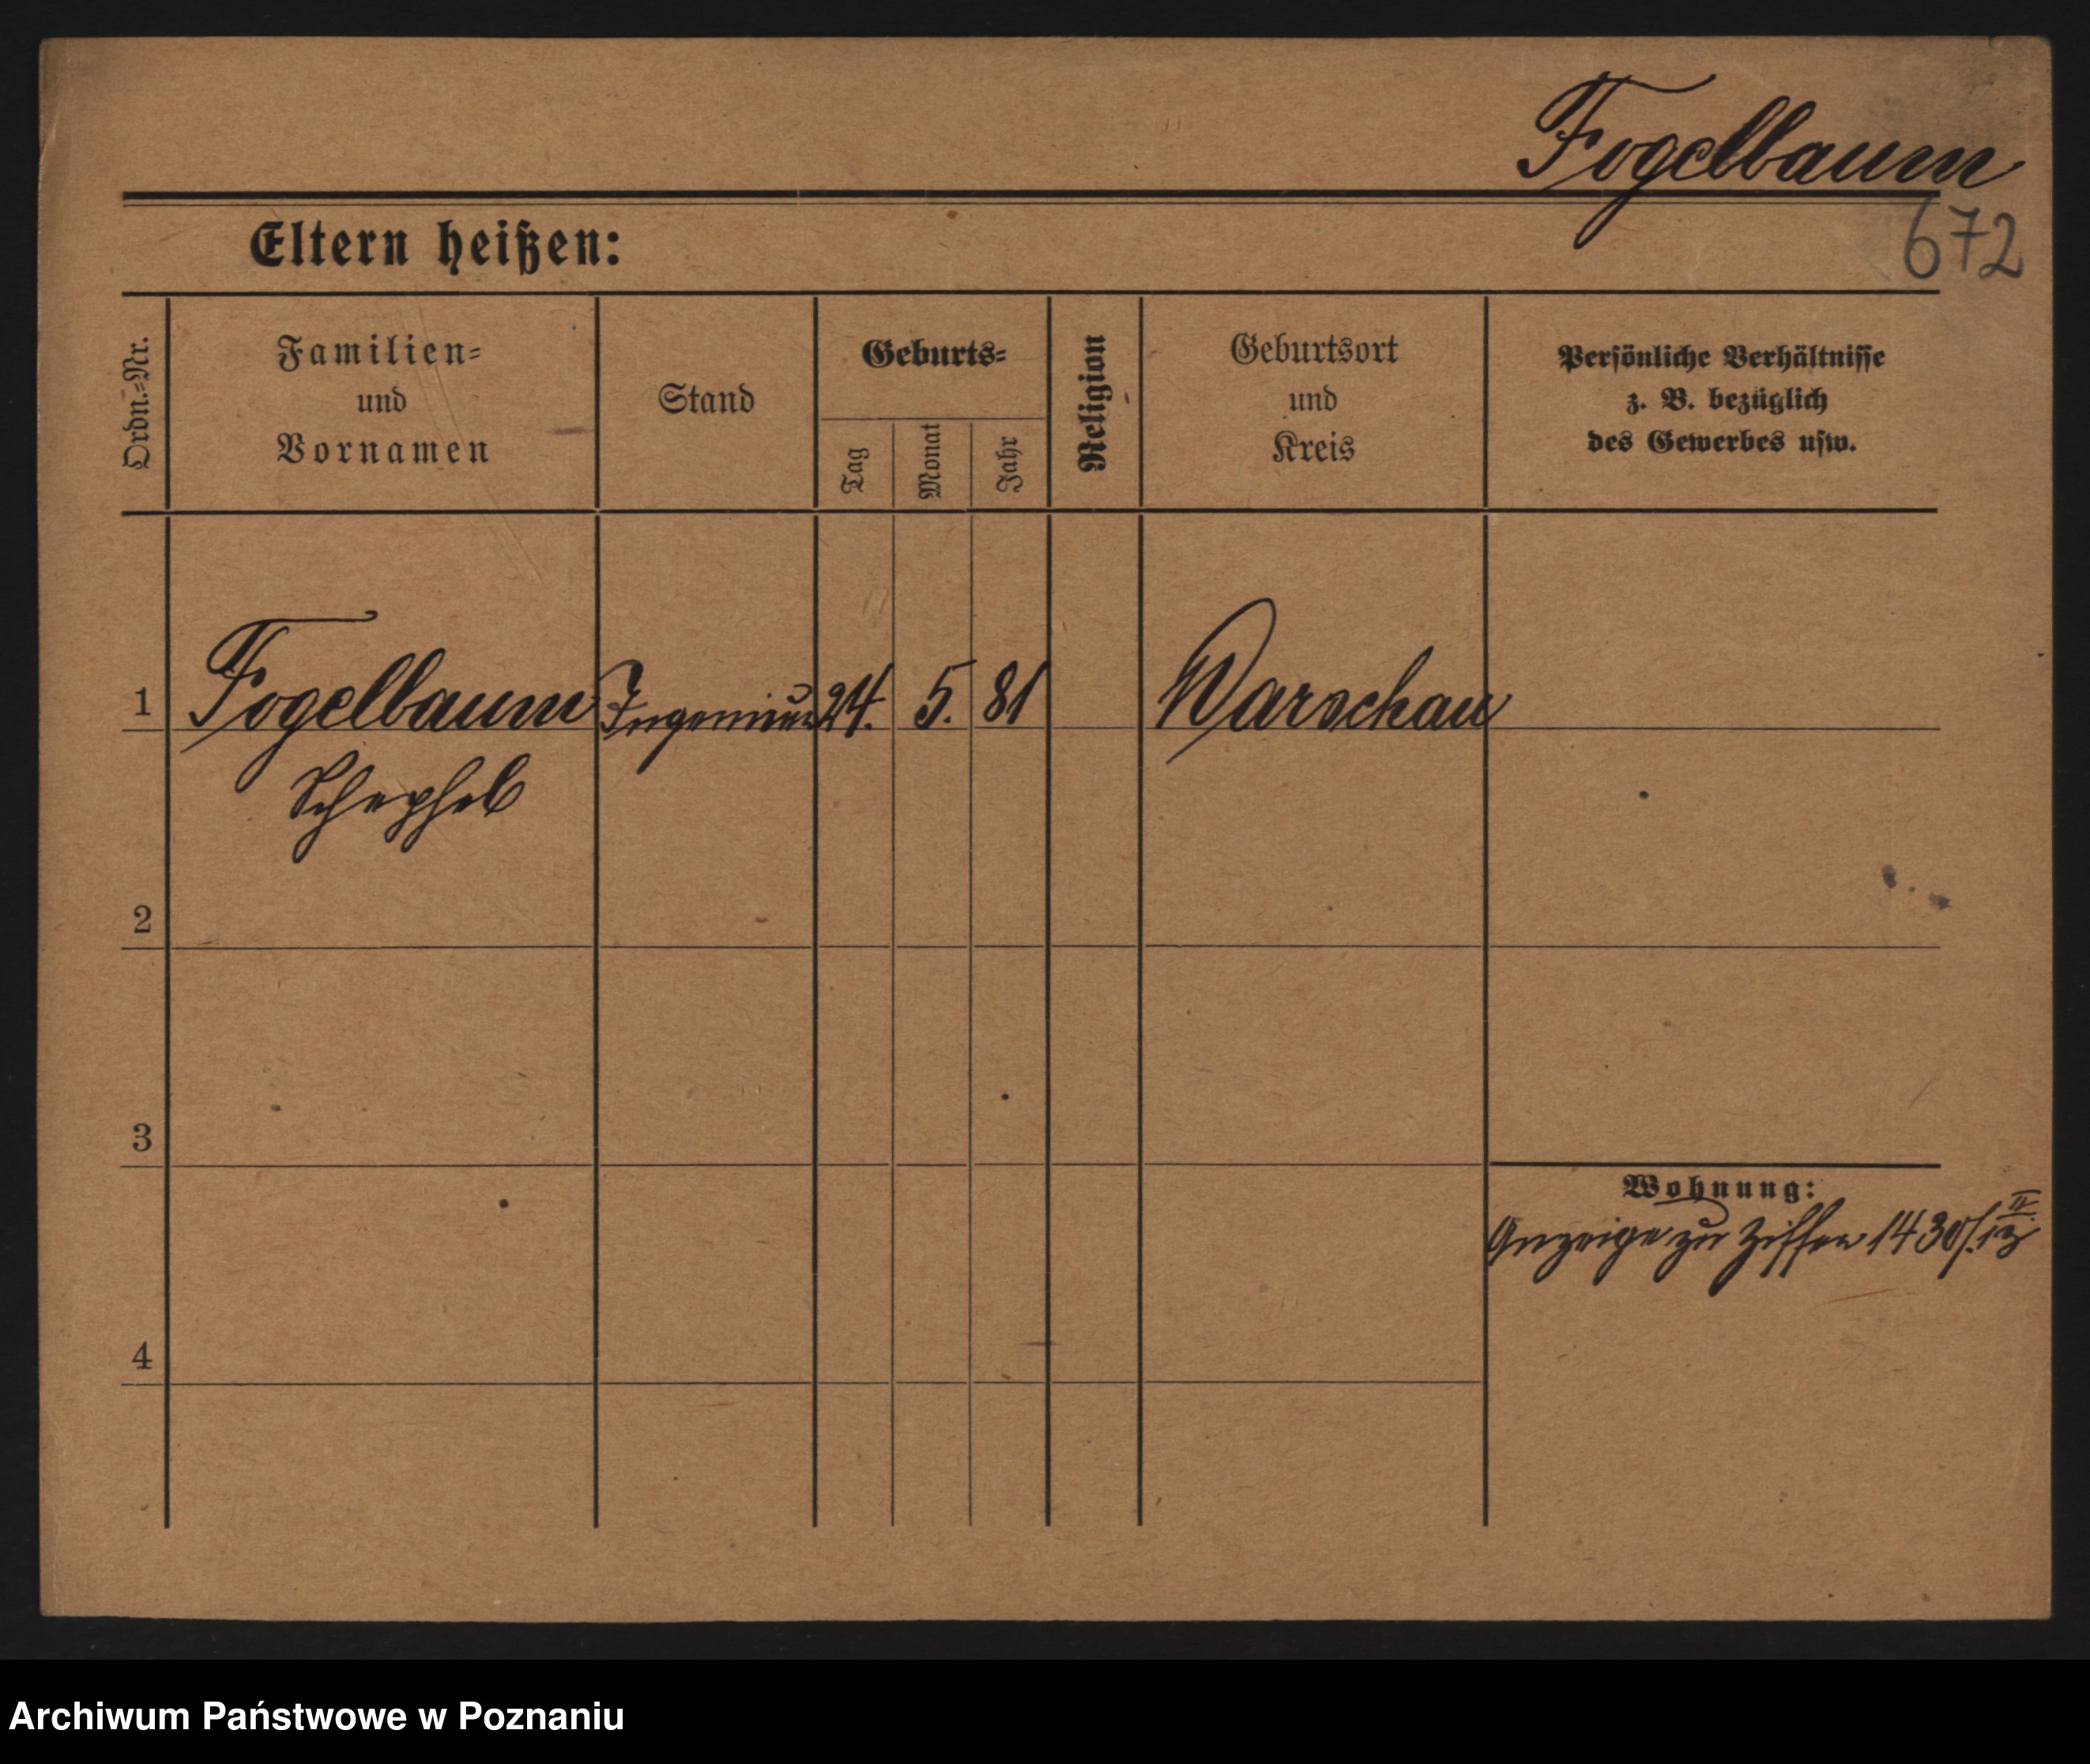 Fogelbaum
672
Eltern heißen:
Ordn.=Nr.
Familien=
und
Vornamen
Stand
Geburts=
Tag
Monat
Jahr
Religion
Geburtsort
und
Kreis
Persönliche Verhältnisse
z. B. bezüglich
des Gewerbes usw.
1 Fogelbaum Ingenieur 24. 5. 81 Warschau
2
3
Wohnung:
Anzeige zu Ziffer 1430/.13
4
Archiwum Państwowe w Poznaniu